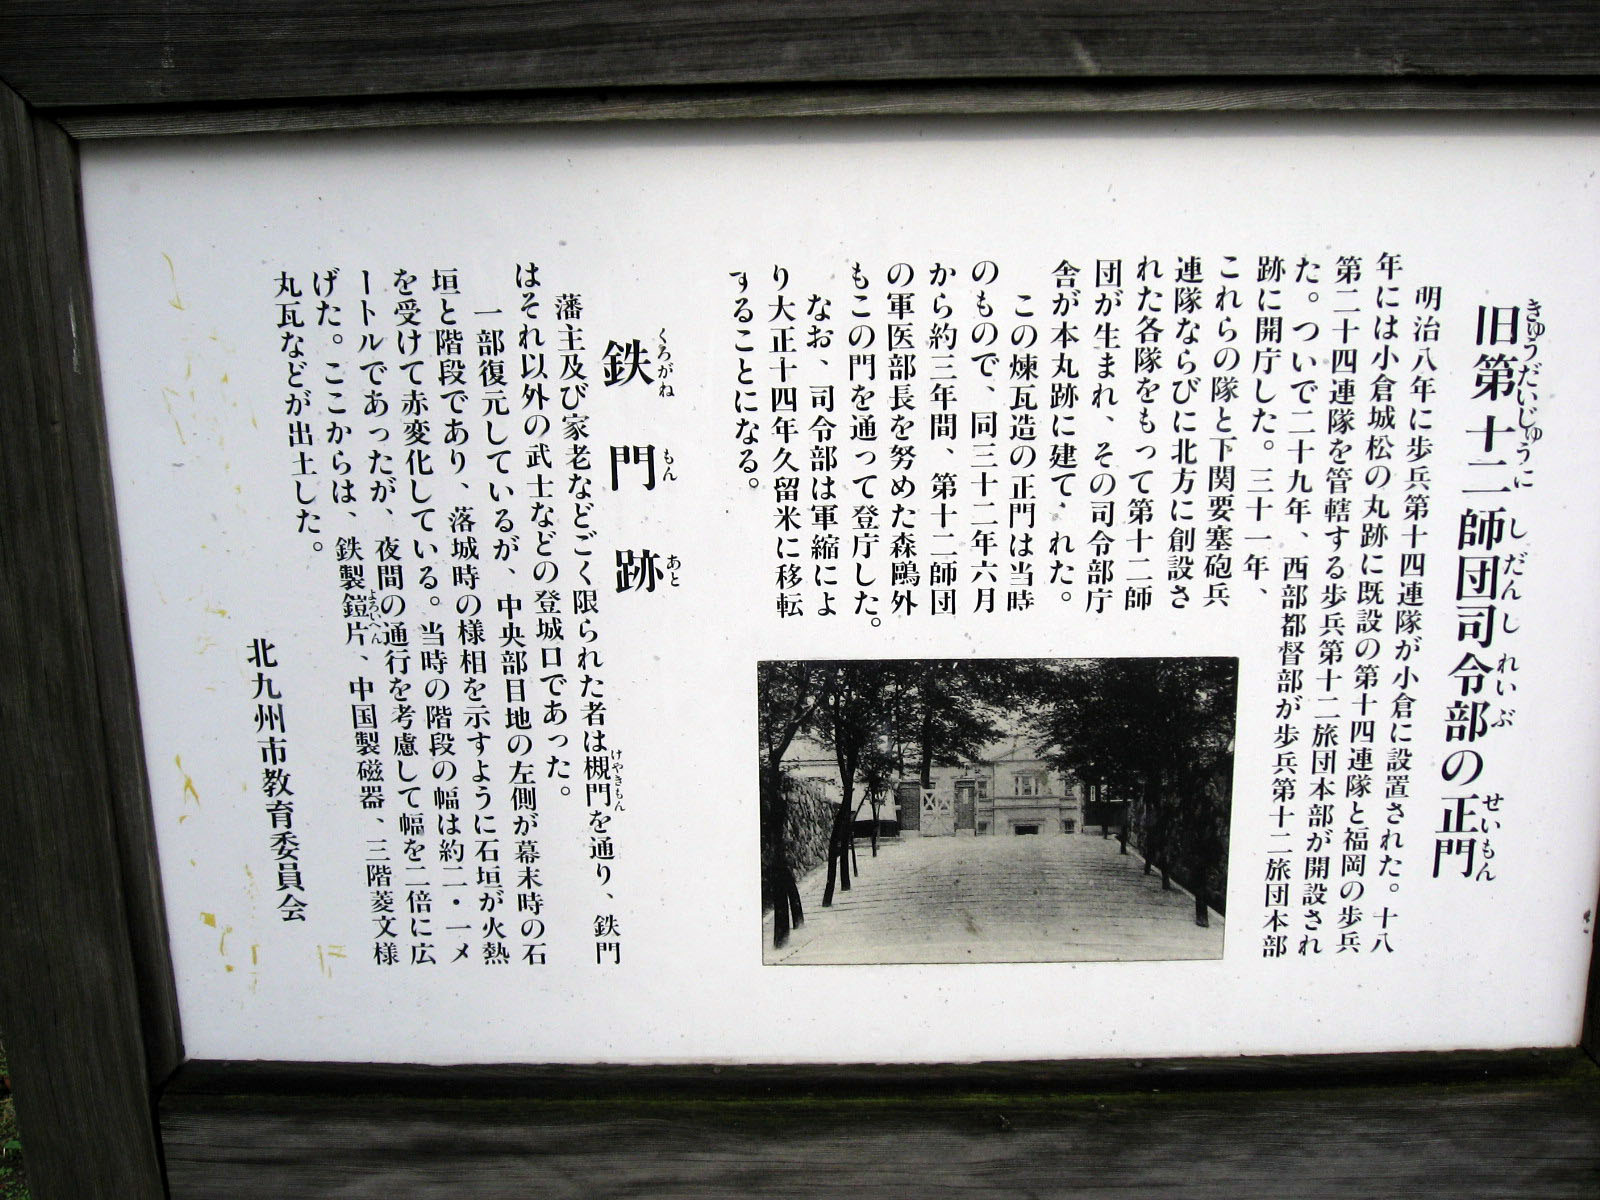 旧第十二師団司令部の正門
きゅうだいじゅうに しだんし れいぶ せいもん
明治八年に歩兵第十四連隊が小倉に設置された。十八
年には小倉城松の丸跡に既設の第十四連隊と福岡の歩兵
第二十四連隊を管轄する歩兵第十二旅団本部が開設され
た。ついで二十九年、西部都督部が歩兵第十二旅団本部
跡に開庁した。三十一年、
これらの隊と下関要塞砲兵
連隊ならびに北方に創設さ
れた各隊をもって第十二師
団が生まれ、その司令部庁
舎が本丸跡に建てられた。
この煉瓦造の正門は当時
のもので、同三十二年六月
から約三年間、第十二師団
の軍医部長を努めた森鷗外
もこの門を通って登庁した。
なお、司令部は軍縮によ
り大正十四年久留米に移転
することになる。
鉄門跡
くろがね もん あと
藩主及び家老などごく限られた者は槻門を通り、鉄門
けやきもん
はそれ以外の武士などの登城口であった。
一部復元しているが、中央部目地の左側が幕末時の石
垣と階段であり、落城時の様相を示すように石垣が火熱
を受けて赤変化している。当時の階段の幅は約二・一メ
ートルであったが、夜間の通行を考慮して幅を二倍に広
げた。ここからは、鉄製鎧片、中国製磁器、三階菱文様
よろいへん
丸瓦などが出土した。
北九州市教育委員会